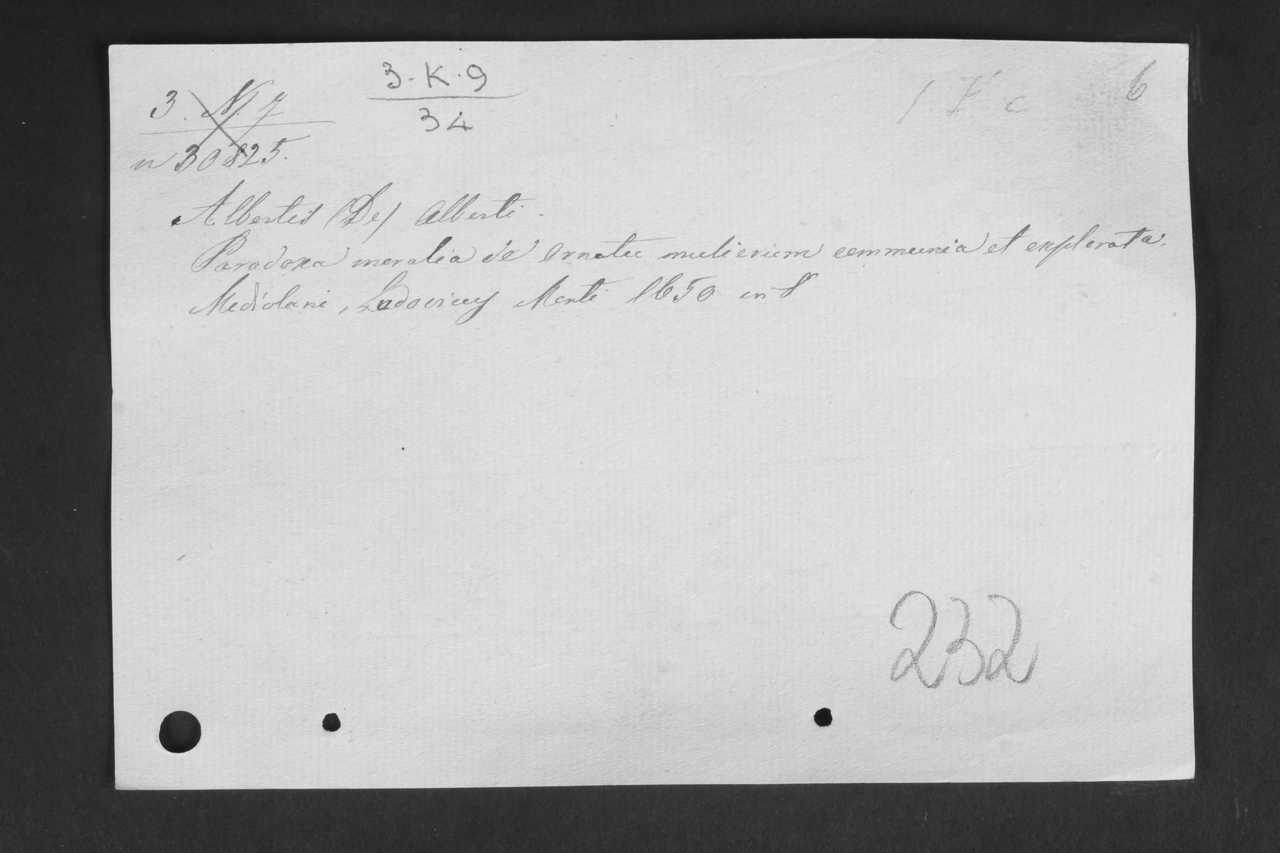 3. N. 7
n 30825.
3-K-9
34
6
Albertis (De) Alberti.
Paradoxa moralia de ornatu mulierum communia et explorata.
Mediolani, Ludovicus Monti 1650 in 8
232